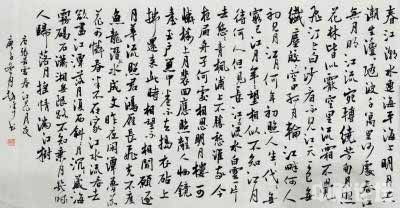 春江潮水連海平海上明月共
潮生灩灩隨波千萬里何處春江
無月明江流宛轉繞芳甸月照
花林皆似霰空里流霜不覺
飛汀上白沙看不見江天一色無
纖塵皎皎空中孤月輪江畔何人
初見月江月何年初照人人生代代無
窮已江月年年望相似不知江月
待何人但見長江送流水白雲一片
去悠悠青楓浦上不勝愁誰家今
夜扁舟子何處相思明月樓可
憐樓上月裴回應照離人妝鏡
臺玉戶簾中卷不去搗衣砧上
拂還來此時相望不相聞願逐
月華流照君鴻雁長飛光不度
魚龍潛躍水成文昨夜閒潭夢落
花可憐春半不還家江水流春去
欲盡江潭落月復西斜斜月沉沉藏海
霧碣石瀟湘無限路不知乘月幾
人歸落月搖情滿江樹
唐張若虛春江花月夜